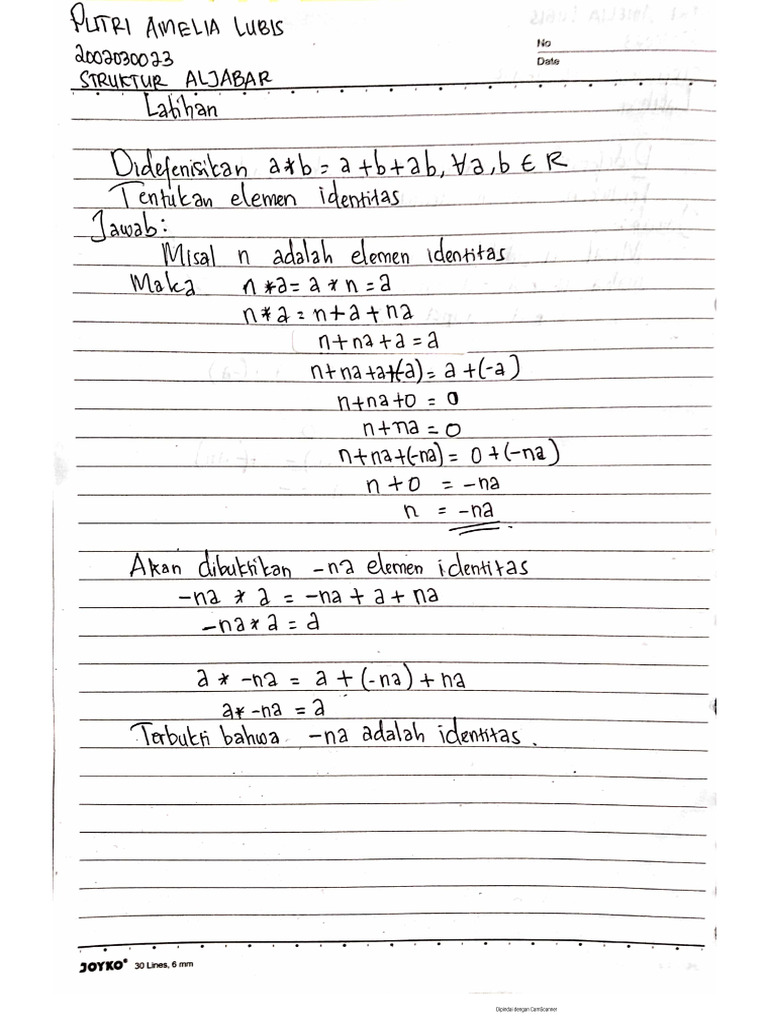 PUTRI AMELIA LUBIS
2002030023
STRUKTUR ALJABAR
No
Date
Latihan
Didefenisikan a*b = a+b+ab, ∀a,b ∈ R
Tentukan elemen identitas
Jawab:
Misal n adalah elemen identitas
Maka n*a = a*n = a
n*a = n+a+na
n+na+a = a
n+na+a+(-a) = a+(-a)
n+na+0 = 0
n+na = 0
n+na+(-na) = 0+(-na)
n+0 = -na
n = -na
Akan dibuktikan -na elemen identitas
-na * a = -na + a + na
-na * a = a
a * -na = a + (-na) + na
a * -na = a
Terbukti bahwa -na adalah identitas.
JOYKO® 30 Lines, 6 mm
Dipindai dengan CamScanner